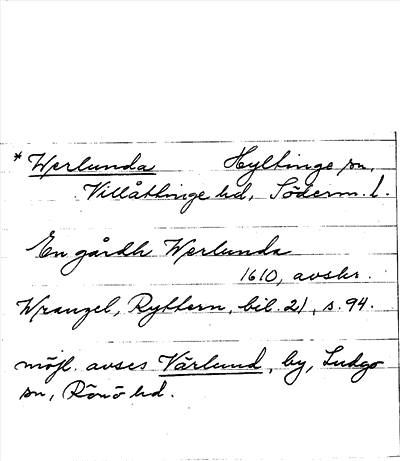 * Werlunda Hyltinge sn,
Villåttinge hd, Söderm. l.
En gårdh Werlunda
1610, avskr.
Wrangel, Ryttern, bil. 21, s. 94.
möjl. avses Vårlund, by, Ludgo
sn, Rönö hd.